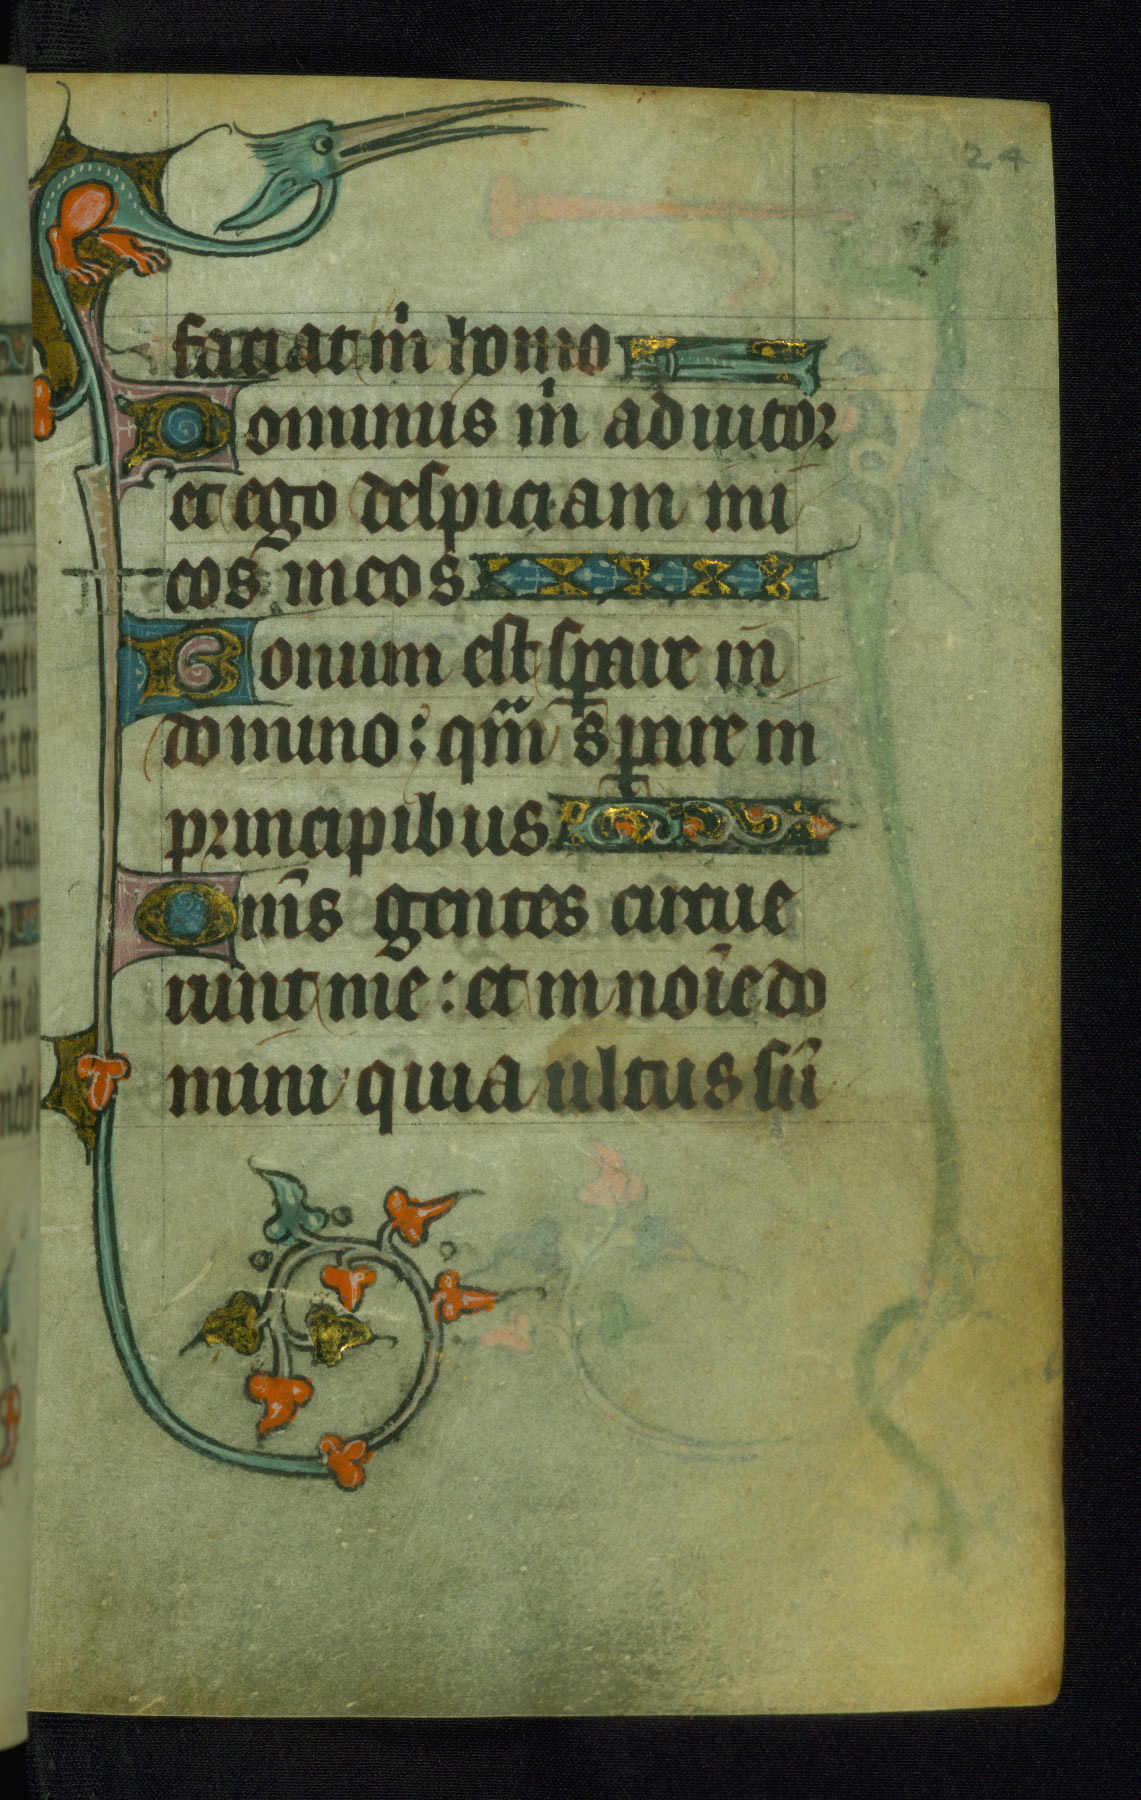 24
faciat m̄ homo
Dominus m̄ adiutor
et ego despiciam mi
cos meos
Bonum est sꝑare in
domino: qm̄ sꝑare in
principibus
Om̄s gentes circue
runt me: et in noīe do
mini quia ultus sū